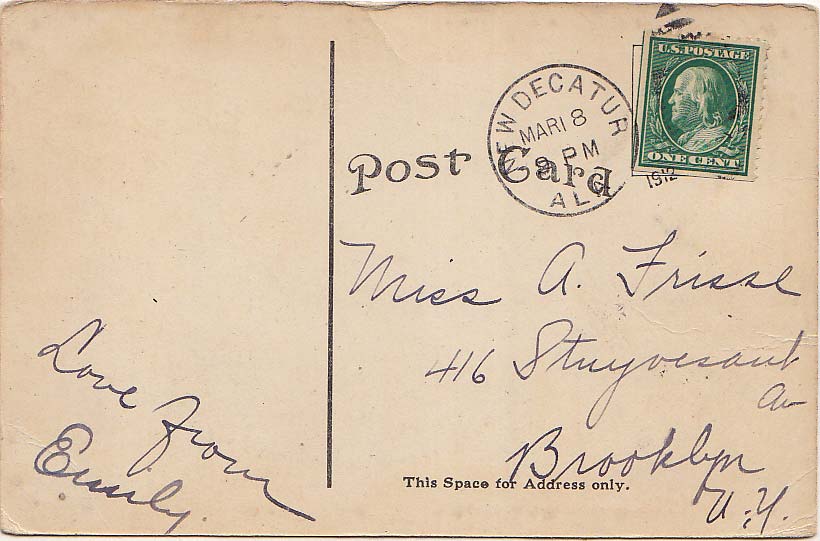 Post Card
NEW DECATUR
MAR 18
8 PM
ALA
1912
U.S. POSTAGE
ONE CENT
Miss A. Frisse
416 Stuyvesant
Av
Brooklyn
N.Y.
Love from
Emily.
This Space for Address only.